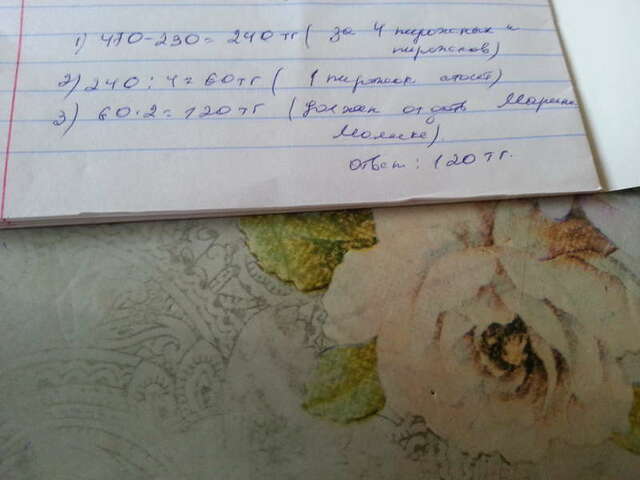 1) 470-230= 240 тг ( за 4 пирожных и
пирожков)
2) 240 : 4= 60 тг ( 1 пирожок стоит)
3) 60·2=120 тг ( должен отдать Марина
Молнске).
Ответ: 120 тг.